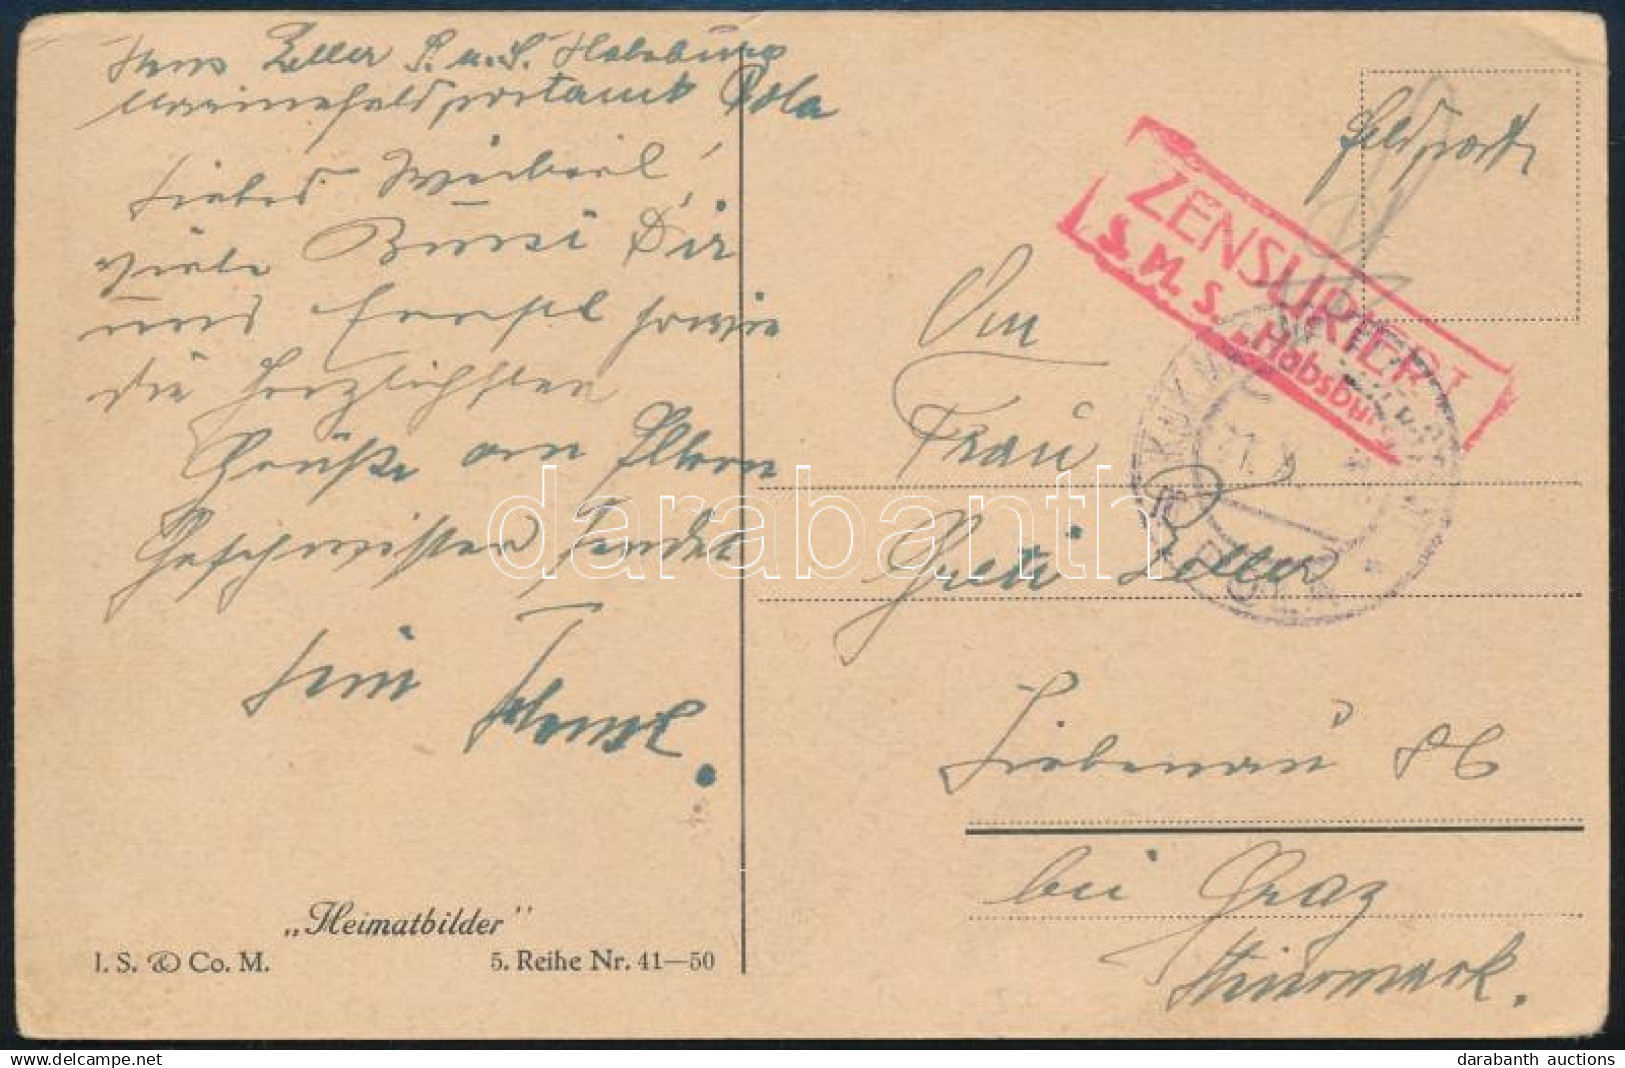 Hans Zeller S.M.S. Habsburg
Marinefeldpostamt Pola
Liebes Weiberl!
viele Bussi Dir
und Ernstl sowie
die herzlichsten
Grüße an Eltern
Geschwister sendet
Dein Hansl.
„Heimatbilder"
I. S. & Co. M.
5. Reihe Nr. 41—50
Feldpost
ZENSURIERT
S. M. S. „Habsburg
K.U.K.
An
Frau
Greti Zeller
Liebenau
bei Graz
Steiermark.
darabanth
darabanth auctions